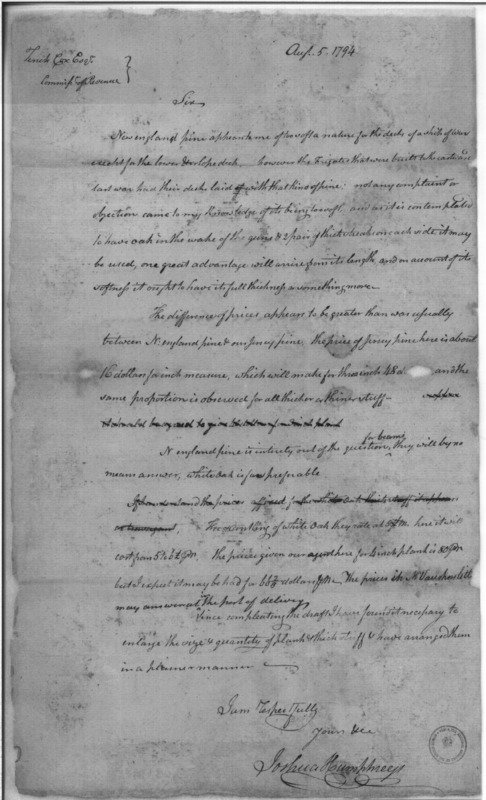 Augt. 5. 1794
Tench Cox Esqr.
Commissr. of Revenue
Sir
New england pine appears to me of too soft a nature for the decks of a ship of war
except for the lower & orlope deck, however the Frigates that were built to the eastward
last war had their decks laid with that kind of pine: not any complaint or
objection came to my Knowledge of its being too soft and as it is contemplated
to have oak in the wake of the guns & 2 pair of thick streaks on each side it may
be used, one great advantage will arise from its length and on account of its
softness it ought to have its full thickness or something more.
The difference of prices, appears to be greater than was usually
between N. england pine & our jersey pine the price of jersey pine here is about
16 dollars for inch measure, which will make for three inch 48 ds and the
same proportion is observed for all thicker or thinner stuff
N england pine is entirely out of the question for beams, they will by no
means answer, white oak is far preferable
The of white oak they rate at here it will
cost from The prices given our here for plank is
but I expect it may be had for dollars The prices in Mr
may answer at the port of delivery
Since compleating the draft I have found it necessary to
enlarge the size & quantity of plank & thick stuff & have arranged them
in a manner
I am Respectfully
Yours &c
Joshua Humphreys